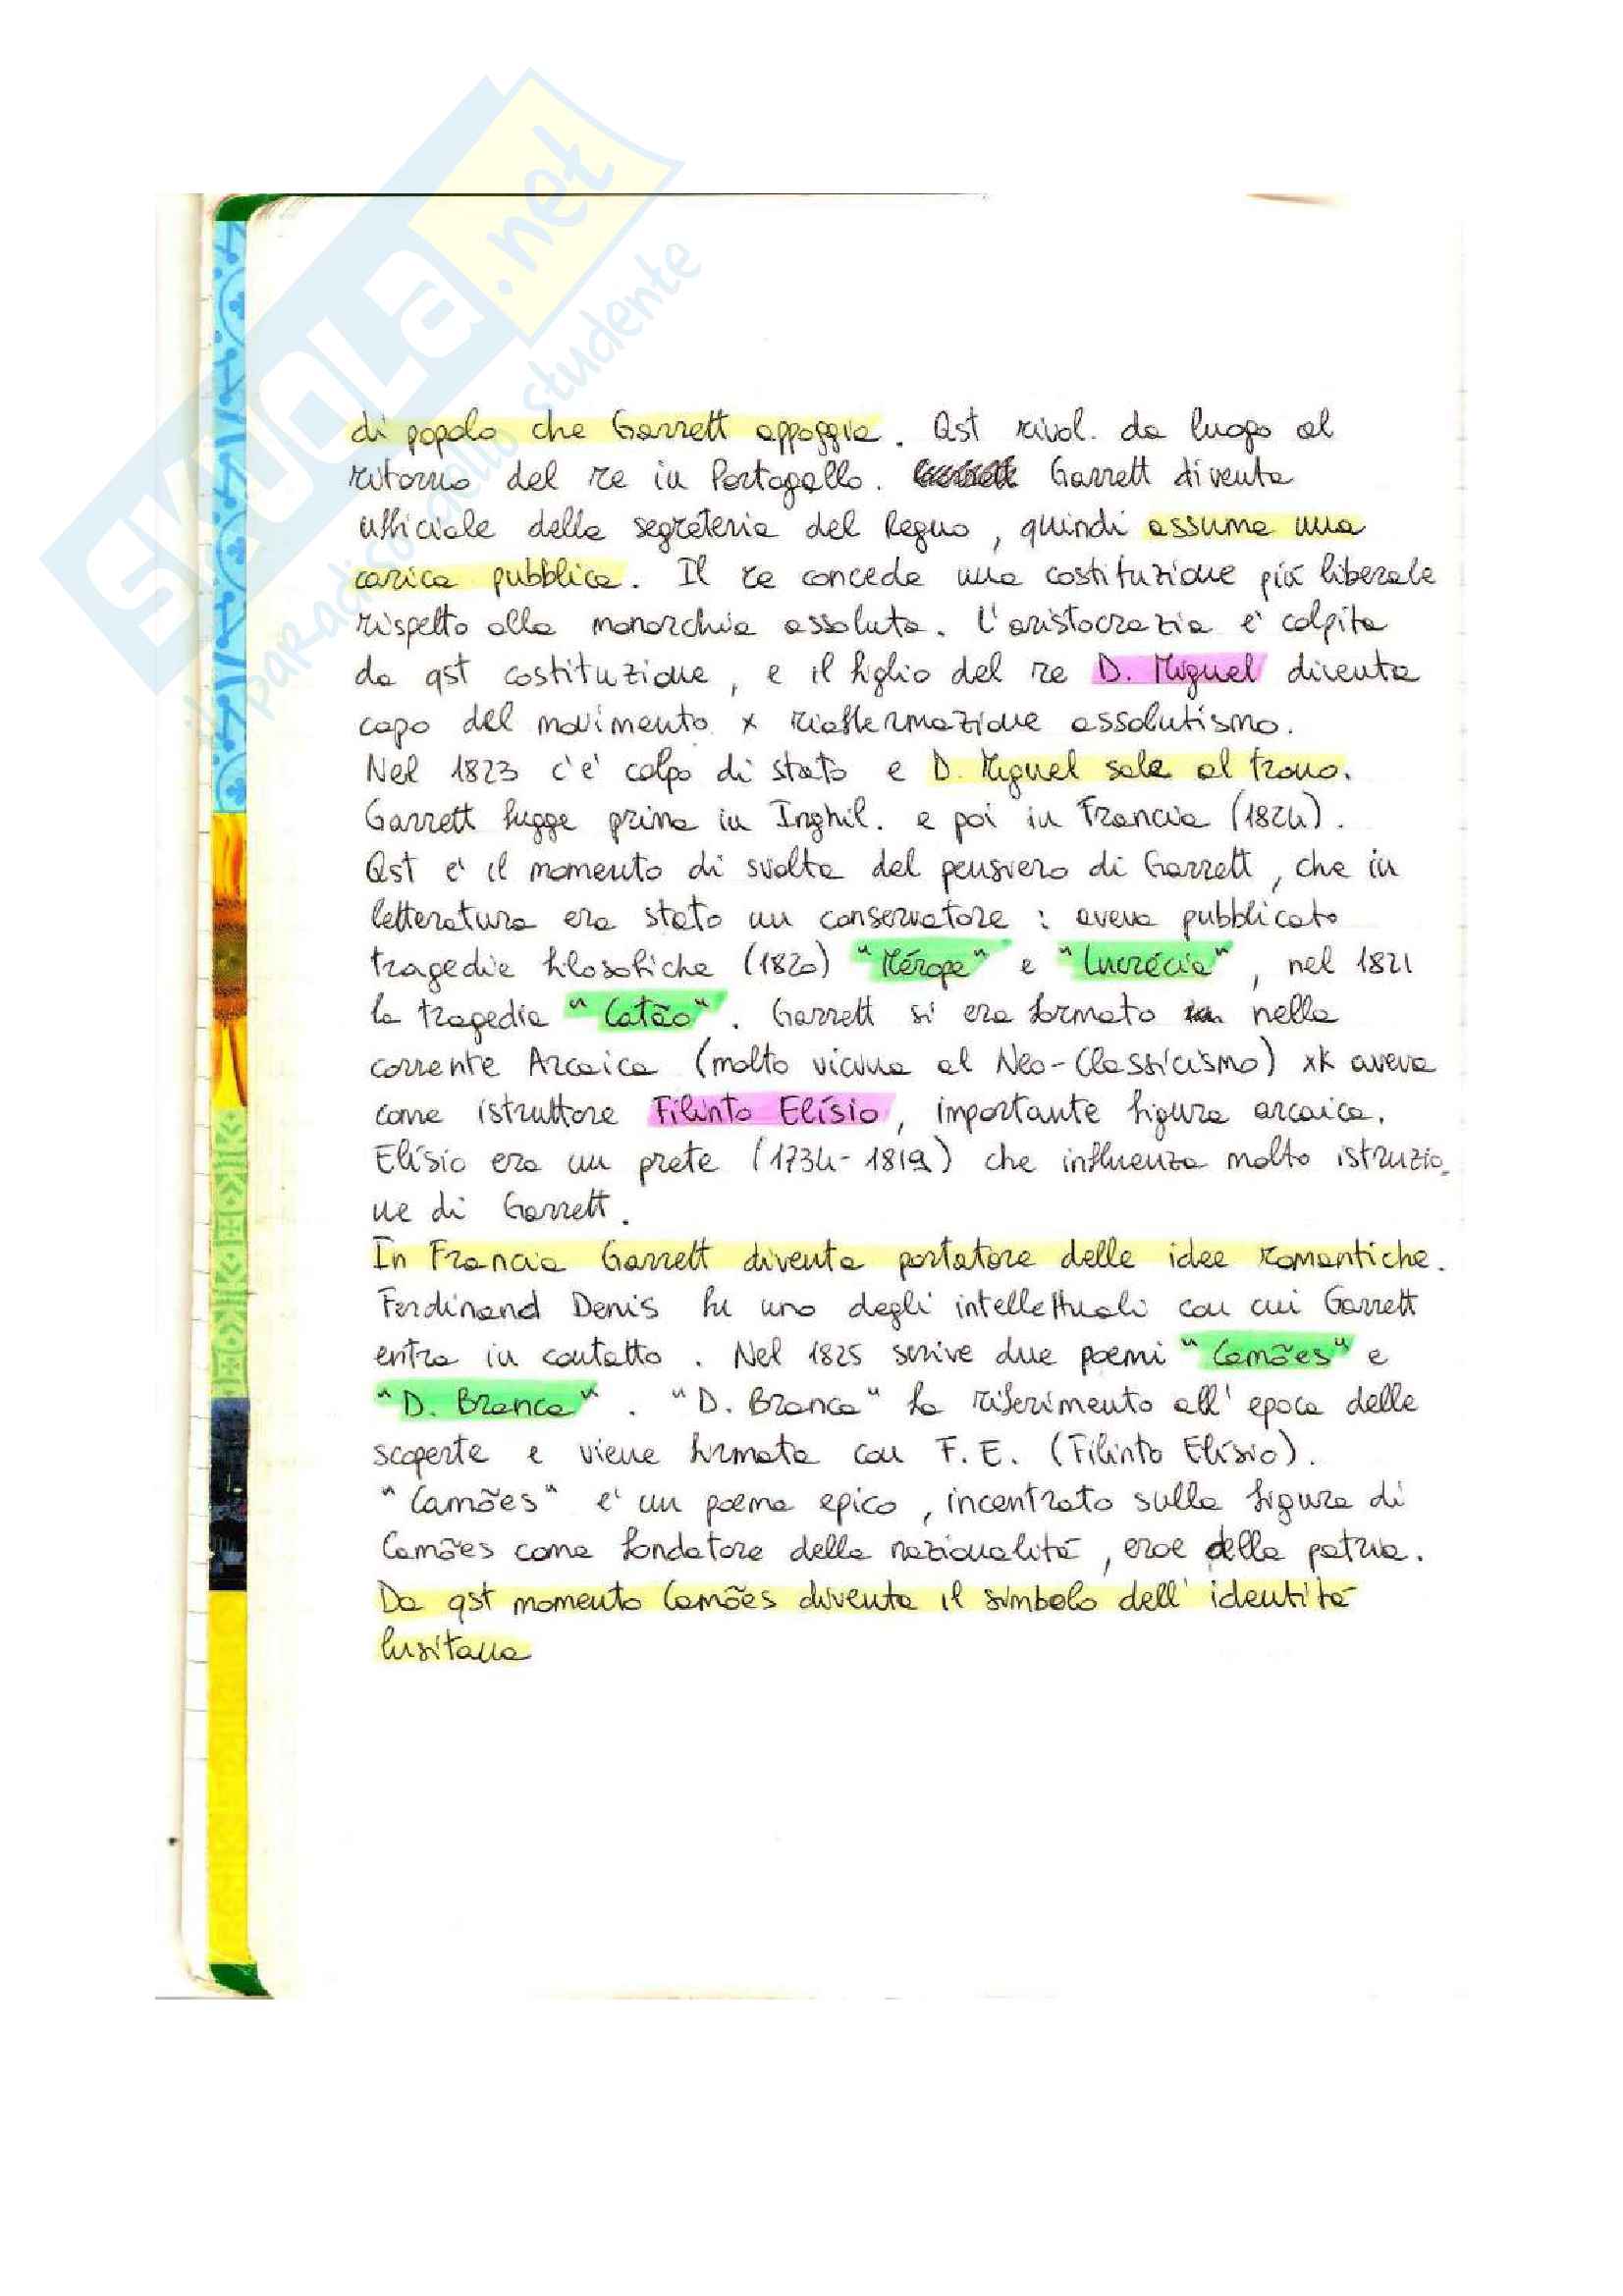 SKUOLA.net
il paradiso dello studente
di popolo che Garrett appoggia. Qst rivol. da luogo al
ritorno del re in Portogallo. Garrett diventa
ufficiale della segreteria del Regno, quindi assume una
carica pubblica. Il re concede una costituzione più liberale
rispetto alla monarchia assoluta. L'aristocrazia è colpita
da qst costituzione, e il figlio del re D. Miguel diventa
capo del movimento x riaffermazione assolutismo.
Nel 1823 c'è colpo di stato e D. Miguel sale al trono.
Garrett fugge prima in Inghil. e poi in Francia (1824).
Qst è il momento di svolta del pensiero di Garrett, che in
letteratura era stato un conservatore: aveva pubblicato
tragedie filosofiche (1820) "Mérope" e "Lucrécia", nel 1821
la tragedia "Catão". Garrett si era formato nella
corrente Arcaica (molto vicina al Neo-Classicismo) xk aveva
come istruttore Filinto Elísio, importante figura arcaica.
Elísio era un prete (1734-1819) che influenza molto istruzio_
ne di Garrett.
In Francia Garrett diventa portatore delle idee romantiche.
Ferdinand Denis fu uno degli intellettuali con cui Garrett
entra in contatto. Nel 1825 scrive due poemi "Camões" e
"D. Branca". "D. Branca" fa riferimento all'epoca delle
scoperte e viene firmata con F.E. (Filinto Elísio).
"Camões" è un poema epico, incentrato sulla figura di
Camões come fondatore della nazionalità, eroe della patria.
Da qst momento Camões diventa il simbolo dell'identità
lusitana